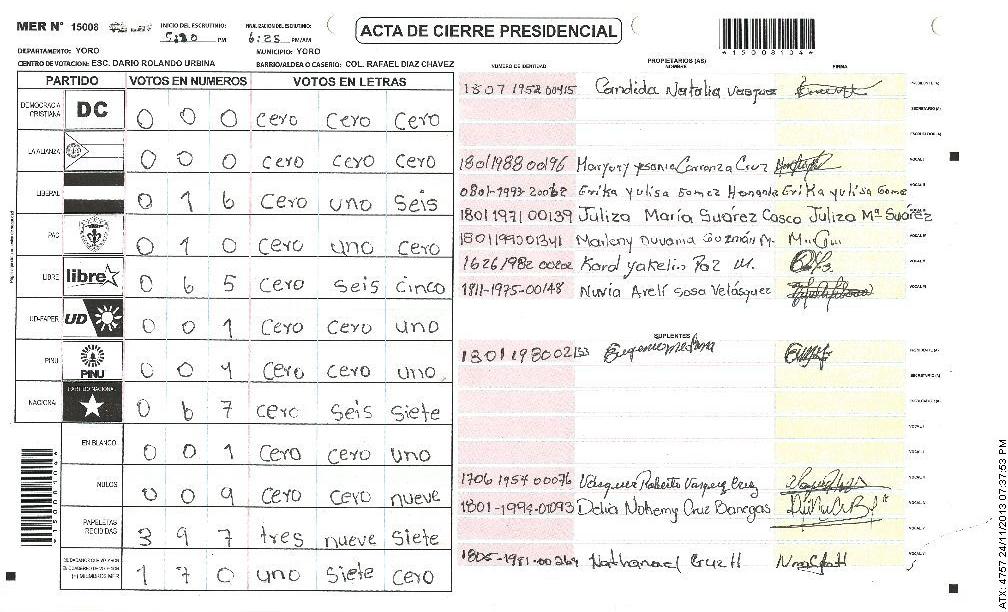 MER N° 15008 INICIO DEL ESCRUTINIO: 5:20 PM FINALIZACION DEL ESCRUTINIO: 6:25 PM/AM
ACTA DE CIERRE PRESIDENCIAL
*15008104*
DEPARTAMENTO: YORO MUNICIPIO: YORO
CENTRO DE VOTACION: ESC. DARIO ROLANDO URBINA BARRIO/ALDEA O CASERIO: COL. RAFAEL DIAZ CHAVEZ
PARTIDO VOTOS EN NUMEROS VOTOS EN LETRAS
DEMOCRACIA CRISTIANA DC 0 0 0 cero cero cero
LA ALIANZA 0 0 0 cero cero cero
LIBERAL 0 1 6 cero uno seis
PAC 0 1 0 cero uno cero
LIBRE libre 0 6 5 cero seis cinco
UD-FAPER UD 0 0 1 cero cero uno
PINU PINU 0 0 1 cero cero uno
NACIONAL PARTIDO NACIONAL 0 6 7 cero seis siete
EN BLANCO 0 0 1 cero cero uno
NULOS 0 0 9 cero cero nueve
PAPELETAS RECIBIDAS 3 9 7 tres nueve siete
(+) MIEMBROS MER 1 7 0 uno siete cero
NUMERO DE IDENTIDAD PROPIETARIOS (AS) NOMBRE FIRMA
1807 1952 00415 Candida Natalia Vasquez
1801 1988 00196 Maryury Yesenia Carranza Cruz
0801-1993-20062 Erika Yulisa Gomez Erika Yulisa Gome
1801 1971 00139 Juliza María Suárez Casco Juliza Mª Suárez
1801199001341 Marleny Guzmán M.
1626 1982 00202 Paz M.
1811-1975-00148 Nuvia Areli Sosa Velásquez
SUPLENTES
1706 1954 00076 Vasquez Roberto
1801-1994-0093 Delia Nohemy Cruz Banegas
1805-1981-00269
ATX: 4757 24/11/2013 07:37:53 PM